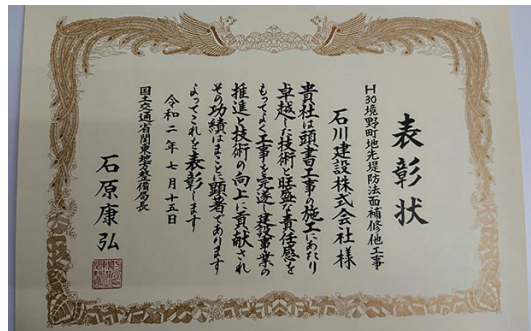 表彰状
H30境野町地先堤防法面補修他工事
石川建設株式会社様
貴社は頭書工事の施工にあたり
卓越した技術と旺盛な責任感を
もってよく工事を完遂し建設事業の
推進と技術の向上に貢献され
その功績はまことに顕著であります
よってこれを表彰します
令和二年七月十五日
国土交通省関東地方整備局長
石原康弘